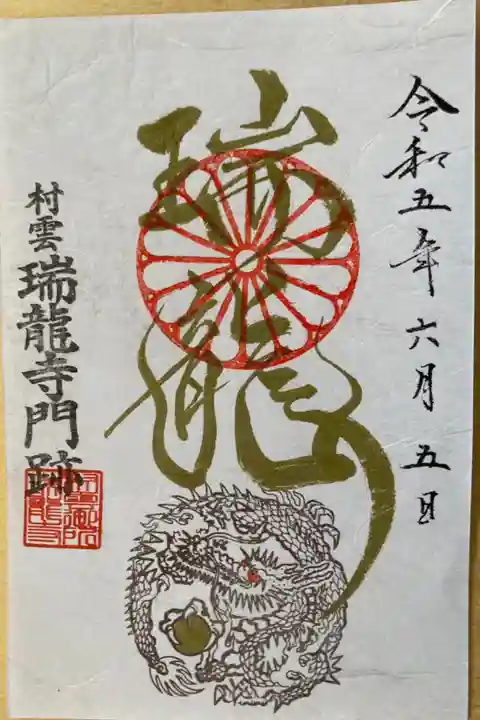 令和五年六月五日
瑞龍
村雲瑞龍寺門跡